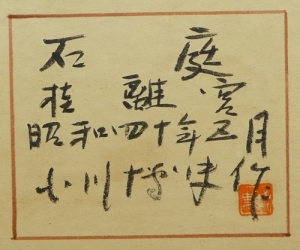 石庭
桂離宮
昭和四十年五月
小川博史作